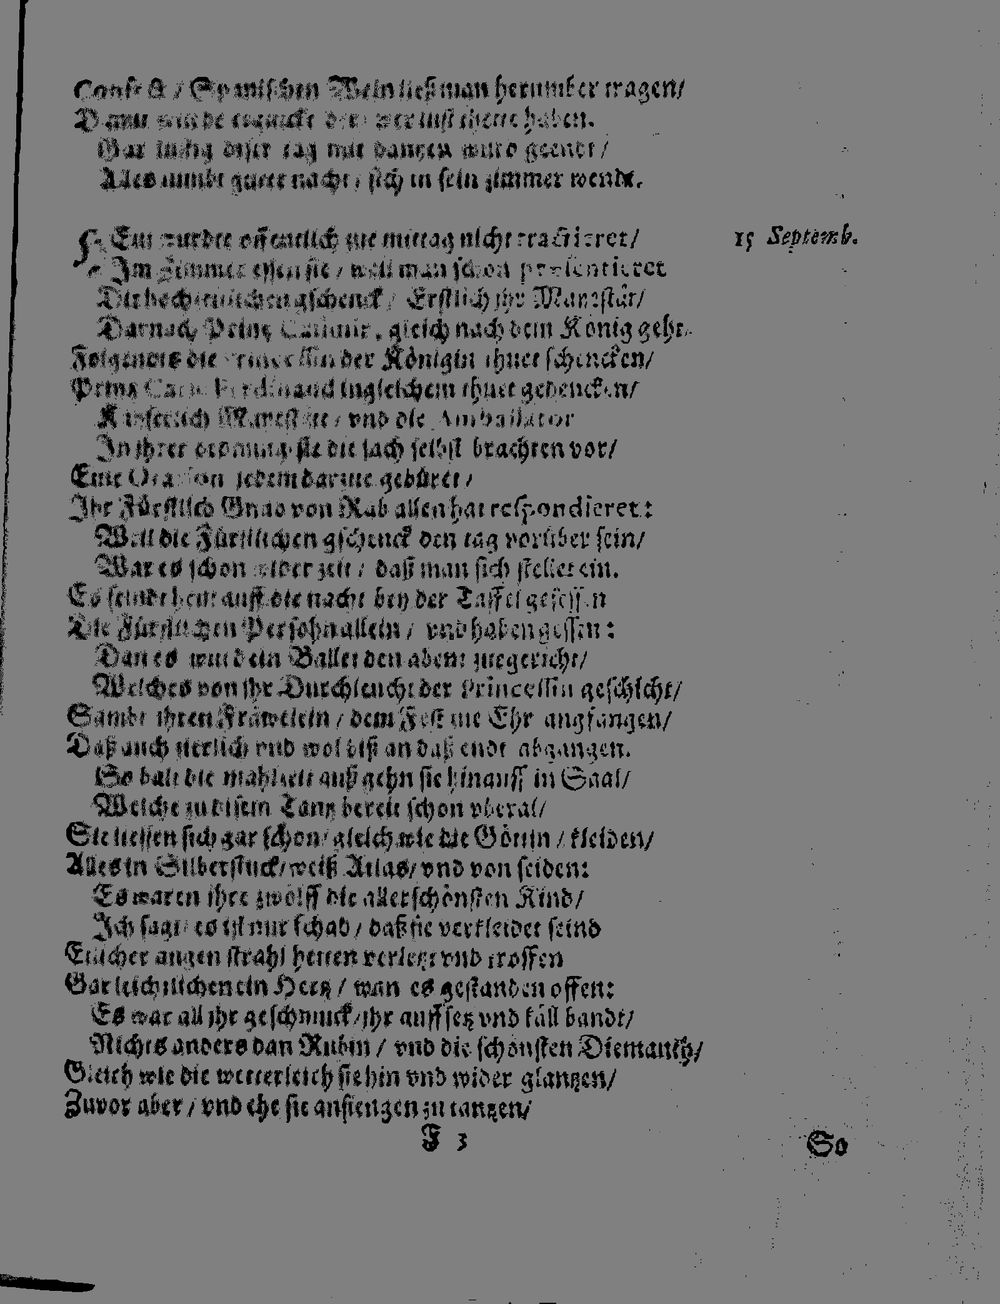 Confect / Spanischen Wein ließ man herumber tragen/
Damit wurde erquickt die verlust hette haben.
Gar lustig diser tag mit dantzen wurd geendt /
Alles nimbt guete nacht / sich in sein zimmer wendt.
Heut wurdte offentlich zue mittag nicht tractieret / 15 Septemb.
Im Zimmer essen sie / weil man schon præsentieret
Die hochzeitlichen gschenck / Erstlich ihr Mayestät/
Darnach Prinz Casimir, gleich nach dem König geht.
Folgendts die Princessin der Königin thuet schencken/
Prinz Carl Ferdinand ingleichem thuet gedencken/
Kayserlich Mayestätt / vnd die Ambassator
In ihrer ordnung sie die sach selbst brachten vor/
Eine Oration jedem darzue gebüret /
Ihr Fürstlich Gnad von Rab allen hat respondieret :
Weil die Fürstlichen gschenck den tag vorüber sein/
War es schon zeit / daß man sich stellet ein.
Es seindt heut auff die nacht bey der Taffel gesessen
Die Fürstlichen Persohn allein / vnd haben gessen :
Dan es wurd ein Ballet den abent zuegericht/
Welches von ihr Durchleucht der Princessin geschicht/
Sambt ihren Fräwelein / dem Fest zue Ehr angfangen/
Daß auch zierlich vnd wol biß an daß endt abgangen.
So balt die mahlzeit auß gehn sie hinauff in Saal/
Welche zu disem Tantz bereit schon vberal/
Sie liessen sich gar schön/ gleich wie die Göttin / kleiden/
Alles in Silberstuck/ weiß Atlas/ vnd von seiden:
Es waren ihre zwölff die allerschönsten Kind/
Ich sag/ es ist nur schad / daß sie verkleidet seind
Etlicher augen strahl hetten verletzt vnd troffen
Gar leichtlichen ein Hertz / wan es gestanden offen:
Es war all ihr geschmuck/ ihr auffsetz vnd fäll bandt/
Nichts anders dan Rubin / vnd die schönsten Diemanth/
Gleich wie die wetterleich sie hin vnd wider glantzen/
Zuvor aber / vnd ehe sie anfiengen zu tantzen/
F 3 So